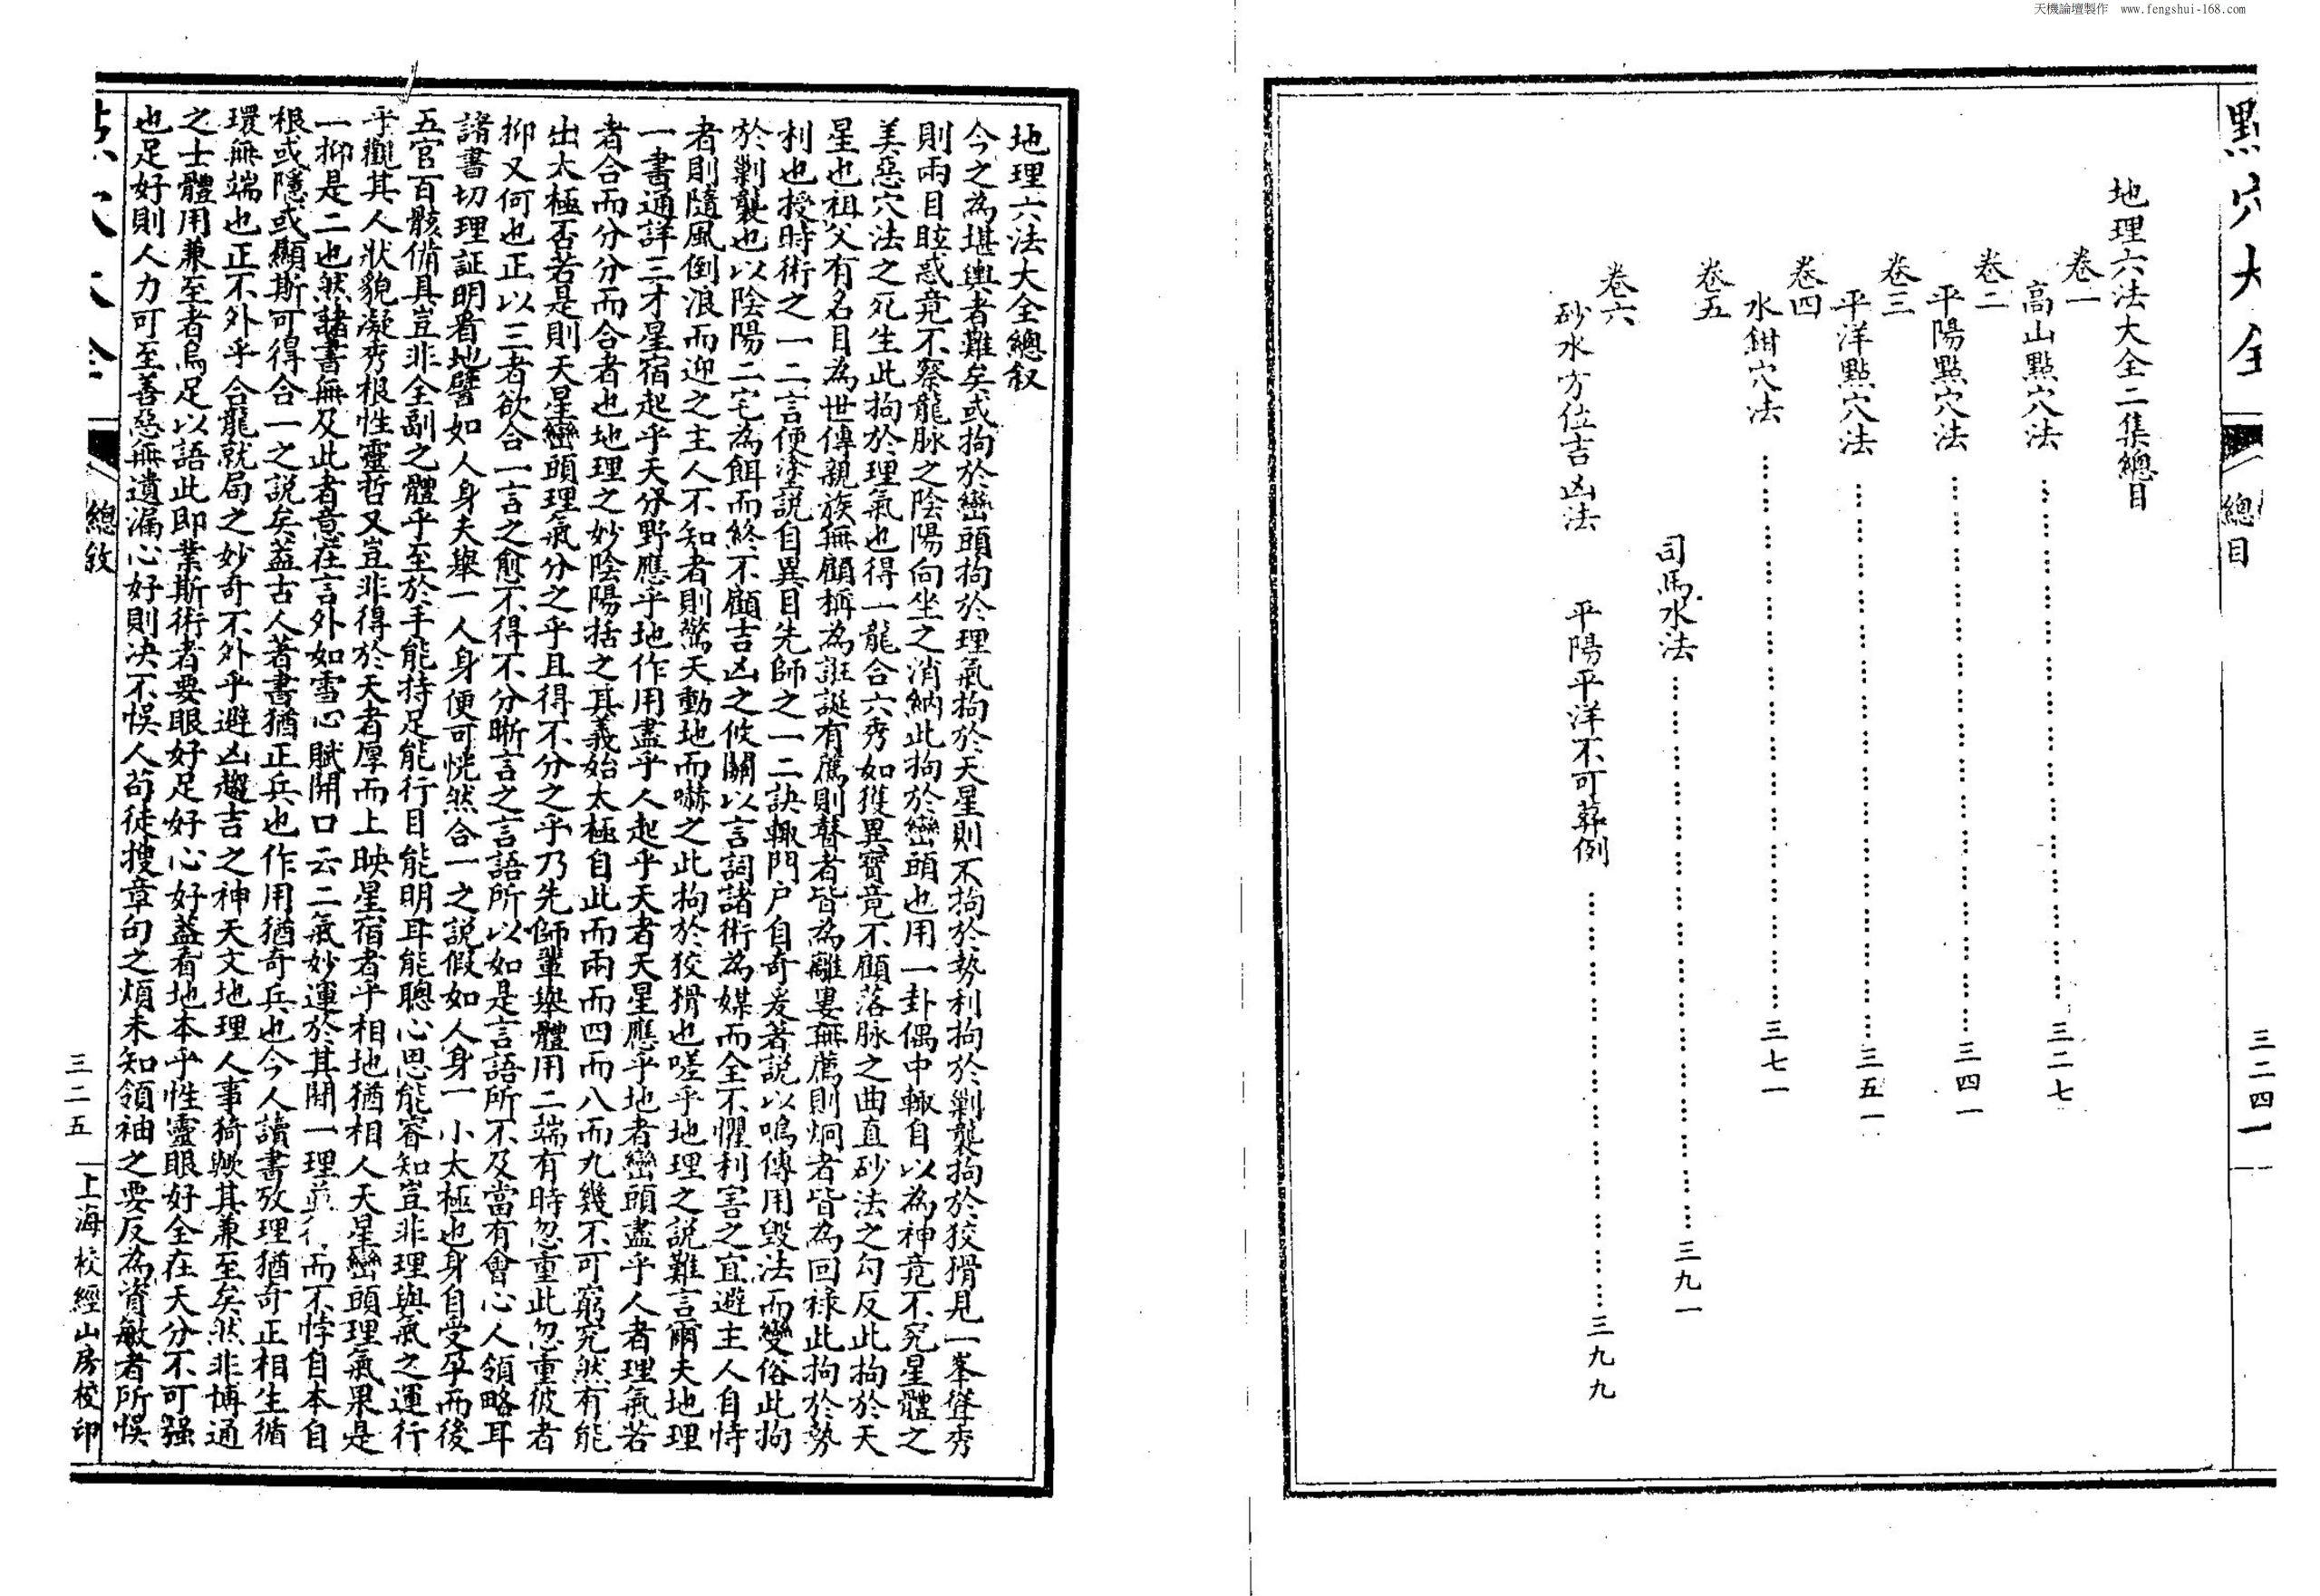 天機論壇製作 www.fengshui-168.com
點穴大全
總目
三二四
地理六法大全二集總目
卷一
高山點穴法 三二七
卷二
平陽點穴法 三四一
卷三
平洋點穴法 三五一
卷四
水鉗穴法 三七一
卷五
司馬水法 三九一
卷六
砂水方位吉凶法 平陽平洋不可葬例 三九九
地理六法大全總叙
今之為堪輿者難矣或拘於巒頭拘於理氣拘於天星則不拘於勢利拘於剿襲拘於狡猾見一峯聳秀
則兩目眩惑竟不察龍脉之陰陽向坐之消納此拘於巒頭也用一卦偶中輙自以為神竟不究星體之
美惡穴法之死生此拘於理氣也得一龍合六秀如獲異寶竟不顧落脉之曲直砂法之勾反此拘於天
星也祖父有名目為世傳親族無顧稱為誑誕有薦則瞽者皆為離婁無薦則炯者皆為回祿此拘於勢
利也授時術之一二言便塗說自異目先師之一二訣輙門户自奇爰著説以鳴傳用毀法而變俗此拘
於剿襲也以陰陽二宅為餌而終不顧吉凶之攸關以言詞諸術為媒而全不懼利害之宜避主人自恃
者則隨風倒浪而迎之主人不知者則驚天動地而嚇之此拘於狡猾也嗟乎地理之説難言爾夫地理
一書通詳三才星宿起乎天分野應乎地作用盡乎人起乎天者天星應乎地者巒頭盡乎人者理氣若
者合而分分而合者也地理之妙陰陽括之其義始太極自此而兩而四而八而九幾不可窮究然有能
出太極否若是則天星巒頭理氣分之乎且得不分之乎乃先師輩舉體用二端有時忽重此忽重彼者
抑又何也正以三者欲合一言之愈不得不分晰言之言語所以如是言語所不及當有會心人領略耳
諸書切理証明看地譬如人身夫舉一人身便可恍然合一之説假如人身一小太極也身自受孕而後
五官百骸備具豈非全副之體乎至於手能持足能行目能明耳能聰心思能睿知豈非理與氣之運行
乎觀其人狀貌凝秀根性靈哲又豈非得於天者厚而上映星宿者乎相地猶相人天星巒頭理氣果是
一抑是二也然諸書無及此者意在言外如雪心賦開口云二氣妙運於其間一理並行而不悖自本自
根或隱或顯斯可得合一之説矣葢古人著書猶正兵也作用猶奇兵也今人讀書攷理猶奇正相生循
環無端也正不外乎合龍就局之妙奇不外乎避凶趨吉之神天文地理人事猗歟其兼至矣然非博通
之士體用兼至者烏足以語此即業斯術者要眼好足好心好葢看地本乎性靈眼好全在天分不可强
也足好則人力可至善惡無遺漏心好則决不悞人苟徒搜章句之煩未知領袖之要反為資敏者所悞
總敘
三二五
上海校經山房校印